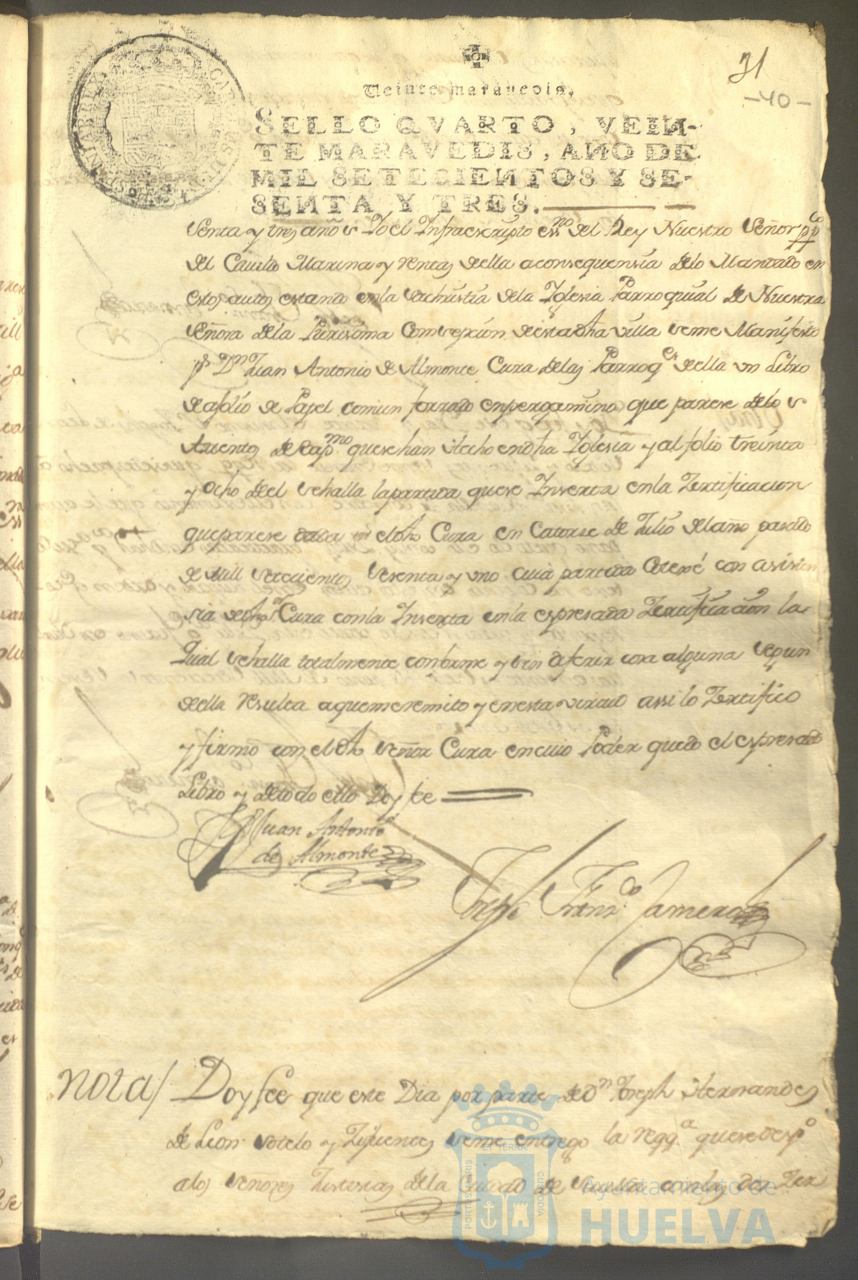 31
-40-
Veinte maravedis.
SELLO QVARTO, VEIN-
TE MARAVEDIS, AÑO DE
MIL SETECIENTOS Y SE-
SENTA Y TRES.
senta y tres años Yo el Infraescripto esno del Rey Nuestro Señor ppco
del Cavildo Marina y rentas della a consequensia delo Mandado en
estos autos estando en la sachristia dela Iglesia Parroquial de Nuestra
Señora dela Purissima Consepsion desta dha villa seme Manifesto
pr Dn Juan Antonio de Almonte Cura delas Parroqs della un Libro
de afolio de Papel comun forrado en pergamino que parese delos
Asientos de Bapmos que se han hecho en dha Iglesia y al folio treinta
y ocho del se halla la partida que se Inserta en la Zertificacion
que parese dada el dho Cura en Catorse de Julio del año pasado
de mill setecientos sesenta y uno cuia partida Coteхé con asisten
sia de dho Sr Cura con la Inserta en la expresada Zertificacion la
Qual se halla totalmente conforme y sin diferir cosa alguna segun
della resulta a que me remito y en esta virtud assi lo Zertifico
y firmo con el dho Señor Cura en cuio Poder quedo el expresado
Libro y de todo ello Doy fe
Juan Antonio
de Almonte
Joseph Frndo Zamera
Nota/ Doy fee que este Dia por parte de Dn Joseph Hernandes
de Leon Sotelo y Zifuentes seme entrego la reqqa que se desp
a los Señores Justisias dela Ciudad de con las dos Zer
Ayuntamiento de
HUELVA